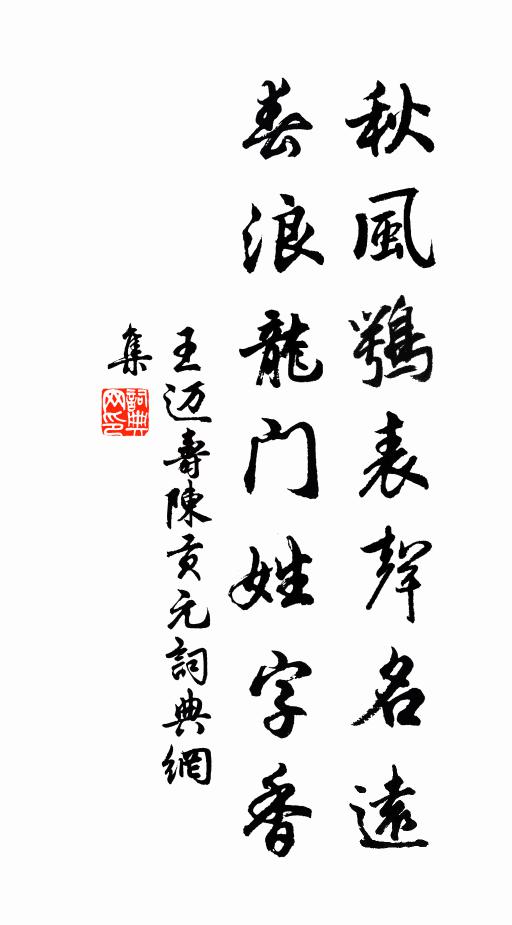 秋風鶚表聲名遠
春浪龍门姓字香
王迈壽陳貢元詞典網
集
詞典
网印